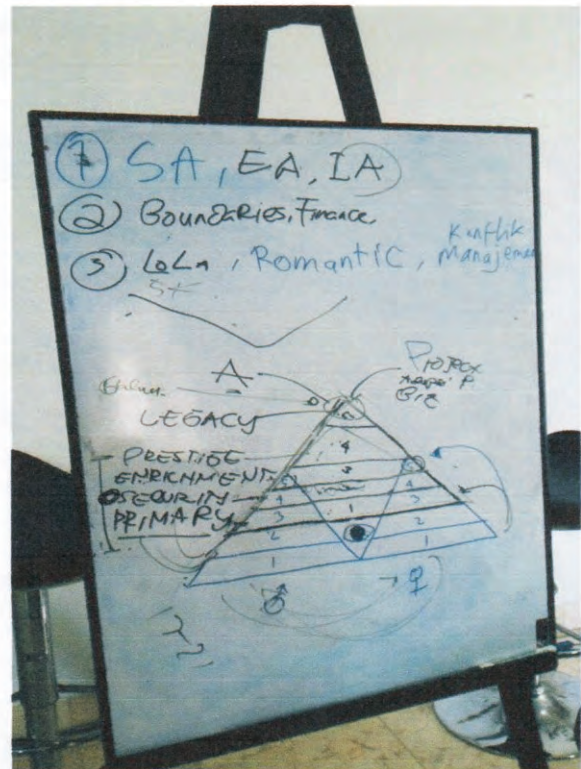 1 SA, EA, IA
2 BounDaRies, Finance,
3 LoLa, Romantic, Konflik Manajemen
A
LEGACY
PRESTIGE
ENRICHMENT
SECURITY
PRIMARY
4
3
5
5
4
4
3
3
1
2
2
1
1
♂
♀